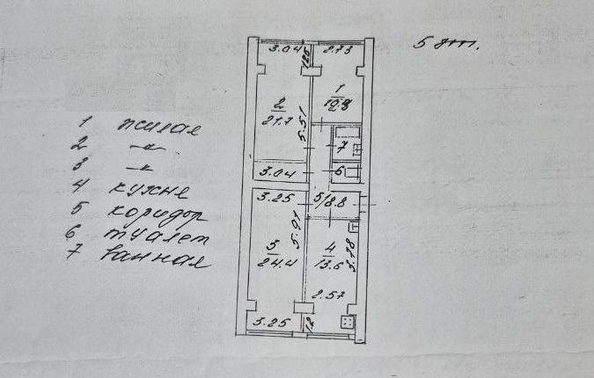 5 эт.
1 жилая
2 -"-
3 -"-
4 кухне
5 коридор
6 туалет
7 ванная
3.04
2.73
1
2
21.7
5.51
7
6
3.04
3.25
5/8.8
5.97
3
24.4
4
13.6
3.78
2.57
3.25
12